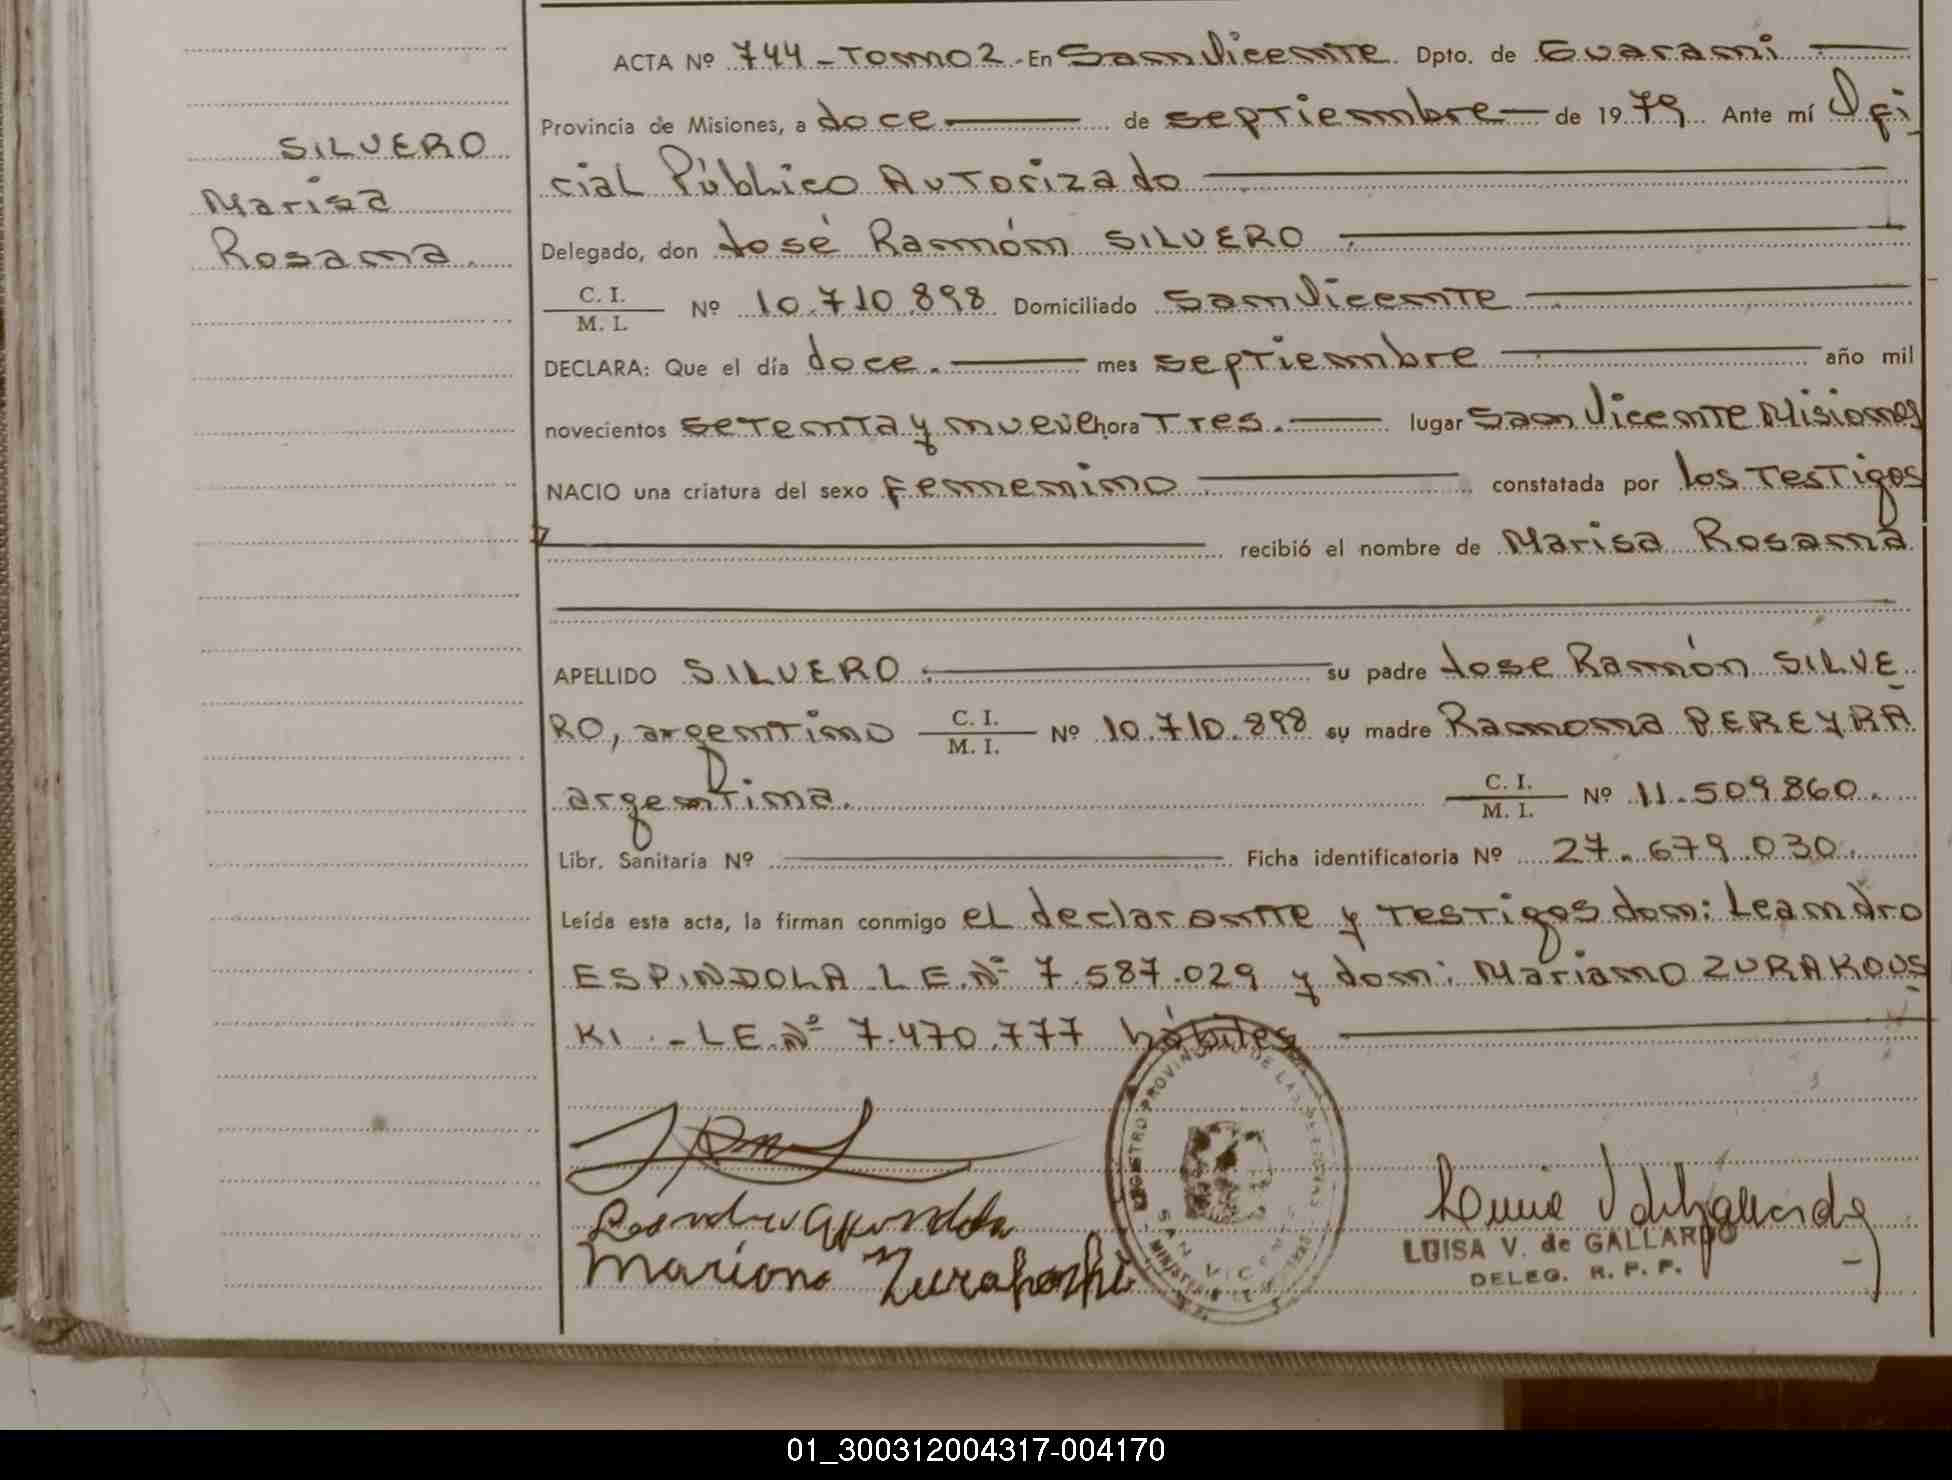 SILVERO
Marisa
Rosana.
ACTA Nº 744 - Tomo 2 - En San Vicente Dpto. de Guarani
Provincia de Misiones, a doce de septiembre de 1979 Ante mí Ofi
cial Público Autorizado
Delegado, don José Ramón SILVERO
C. I.
M. I. Nº 10.710.898 Domiciliado San Vicente
DECLARA: Que el día doce. mes septiembre año mil
novecientos setenta y nueve hora Tres. lugar San Vicente Misiones
NACIO una criatura del sexo femenino constatada por los Testigos
recibió el nombre de Marisa Rosana
APELLIDO SILVERO su padre Jose Ramón SILVE
RO, argentino C. I. M. I. Nº 10.710.898 su madre Ramona PEREYRA
argentina. C. I. M. I. Nº 11.509.860.
Libr. Sanitaria Nº Ficha identificatoria Nº 27.679.030.
Leída esta acta, la firman conmigo el declarante y Testigos don: Leandro
ESPINDOLA L.E.Nº 7.587.029 y don: Mariano ZURAKOUS
KI. - L.E.Nº 7.470.777 hábiles
REGISTRO PROVINCIAL DE LAS PERSONAS
SAN VICENTE
LUISA V. de GALLARDO
DELEG. R. P. P.
01_300312004317-004170